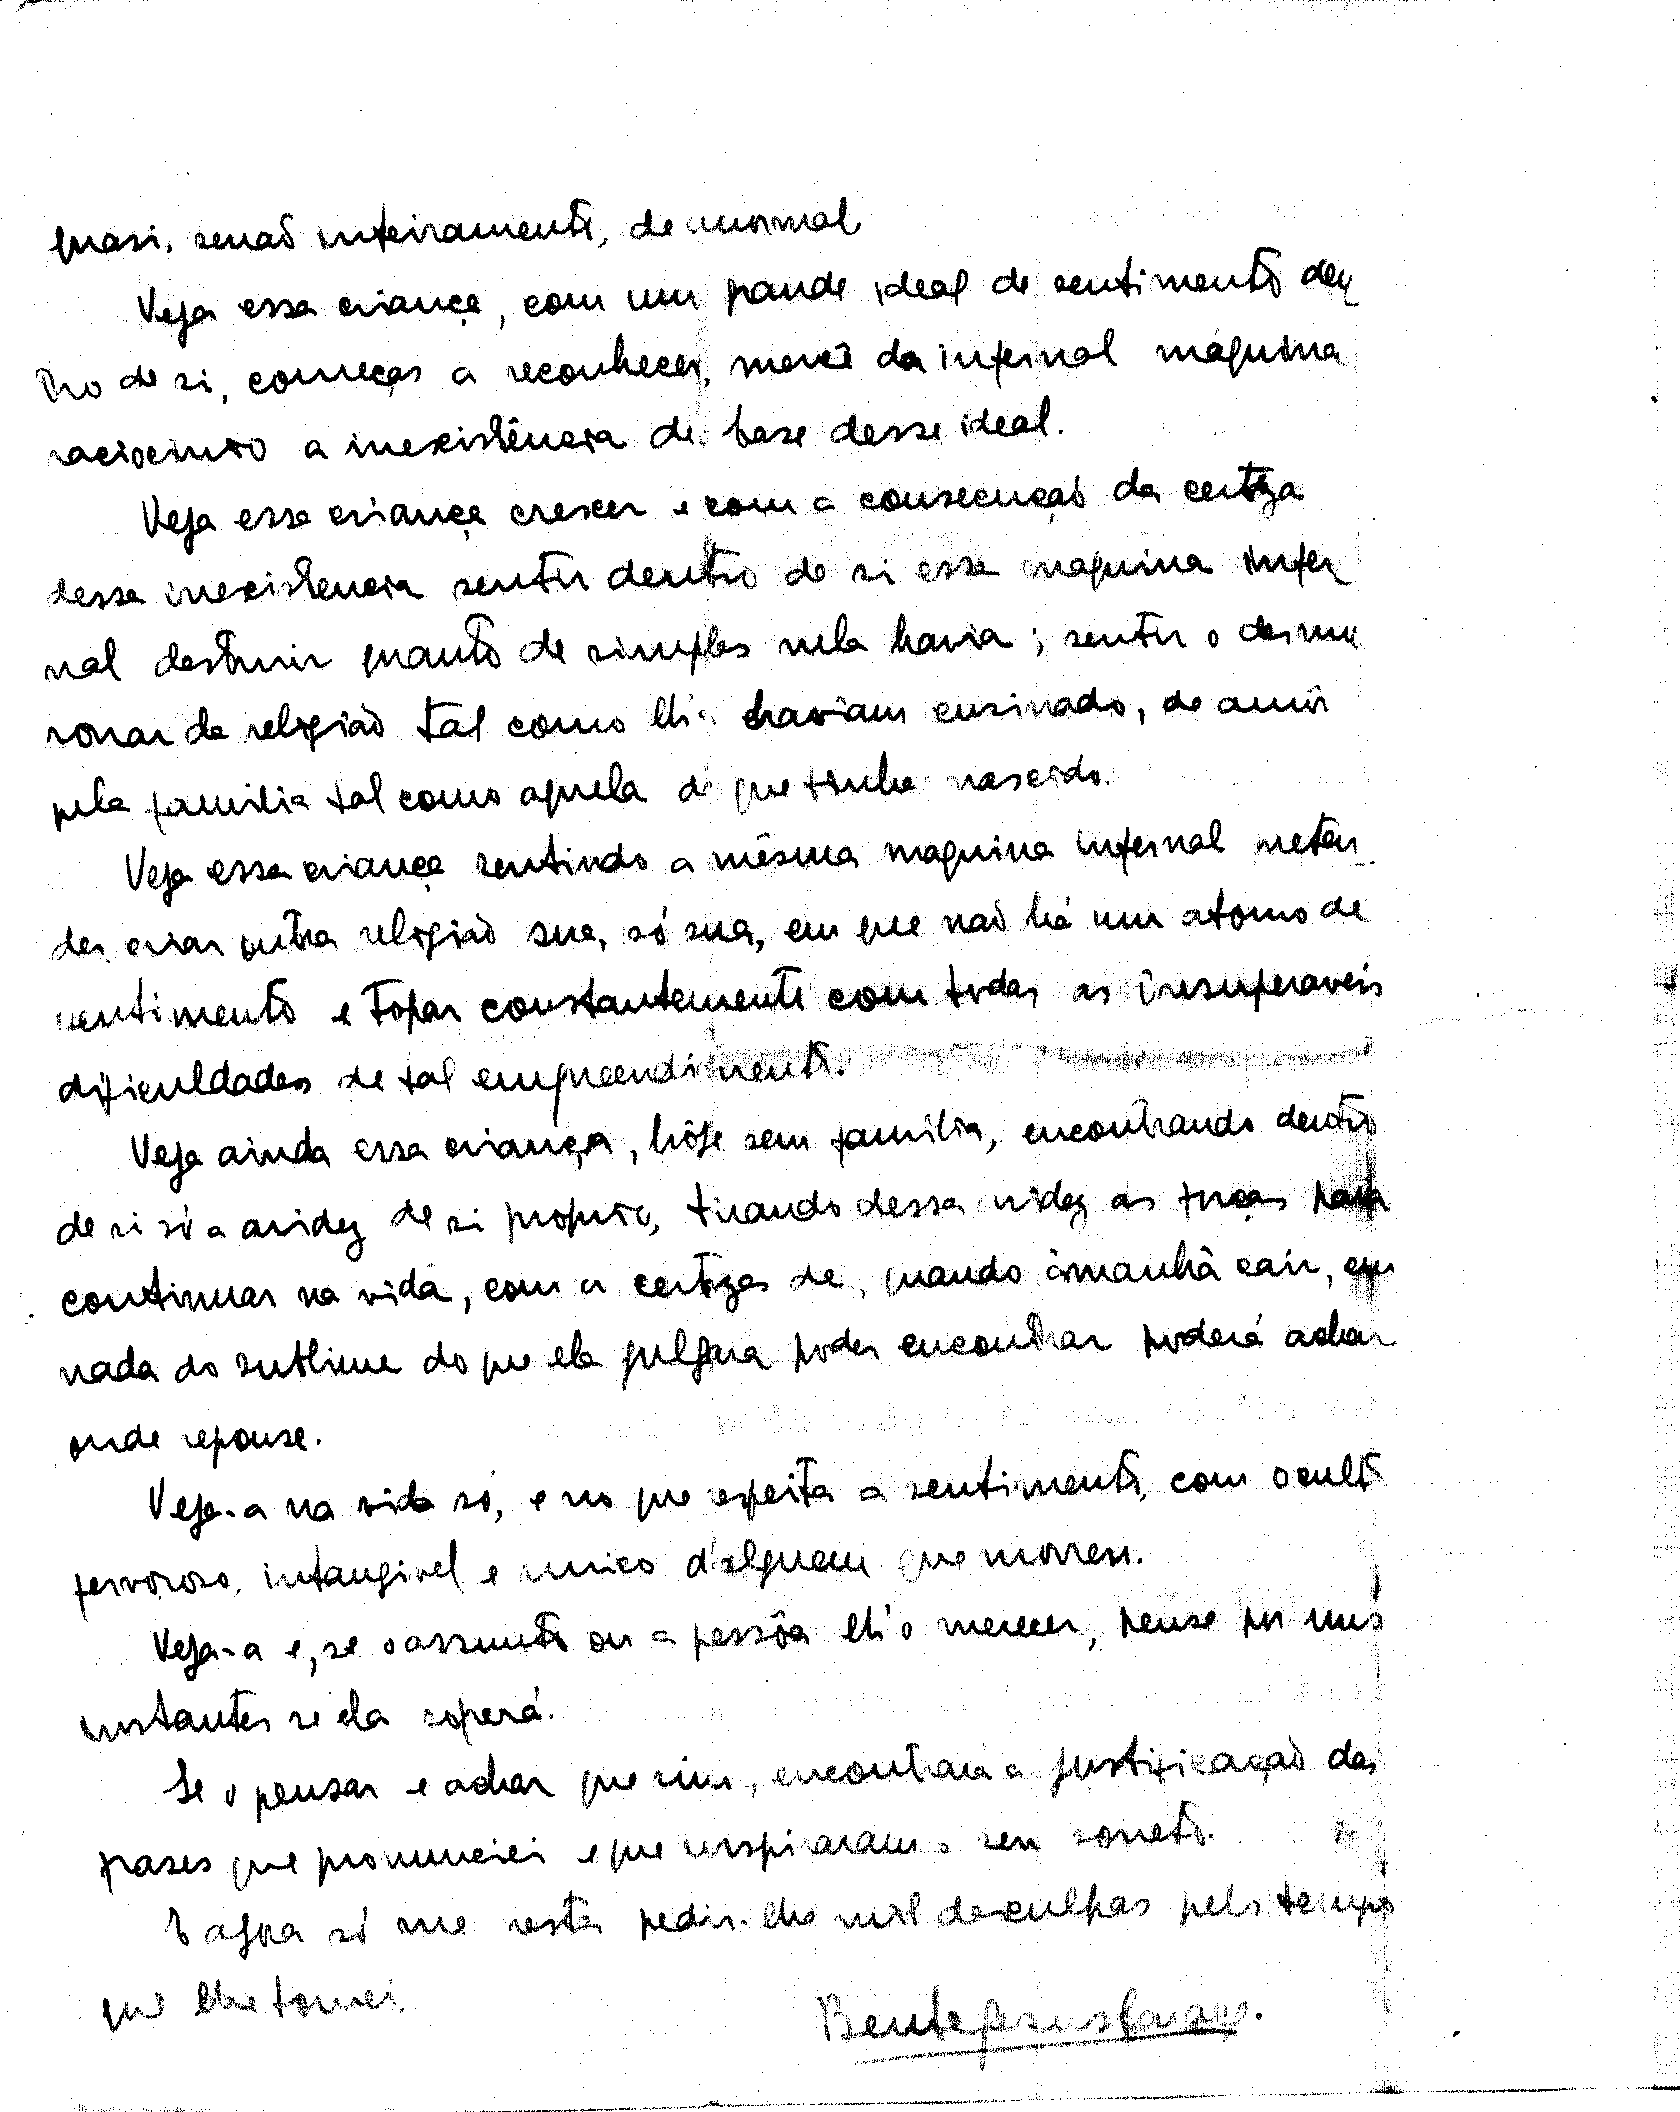 quasi, senaõ inteiramente, de anormal
Veja essa criança, com um grande ideal de sentimento den
tro de si, começar a reconhecer, mercê da infernal máquina
raciocinio a inexistência de base desse ideal.
Veja essa criança crescer e com a consecuçaõ da certeza
dessa inexistencia sentir dentro de si essa maquina infer
nal destruir quanto de simples nela havia; sentir o desmo
ronar da religiaõ tal como lh'a haviam ensinado, de amôr
pela familia tal como aquela de que tinha nascido.
Veja essa criança sentindo a mêsma maquina infernal preten
der criar outra religiaõ sua, só sua, em que naõ há um atomo de
sentimento e topar constantemente com todas as insuperaveis
dificuldades de tal empreendimento.
Veja ainda essa criança, hôje sem familia, encontrando dentro
de si só a aridez de si proprio, tirando dessa aridez as forças para
continuar na vida, com a certeza de, quando àmanhã cair, em
nada do sublime do que ela julgara poder encontrar poderá achar
onde repouse.
Veja-a na vida só, e no que respeita a sentimento, com o culto
fervoroso, intangivel e unico d'alguem que morreu.
Veja-a e, se o assunto ou a pessôa lh'o merecer, pense por uns
instantes se ela sofrerá.
Se o pensar e achar que sim, encontrará a justificaçaõ das
frases que pronunciei e que inspiraram o seu soneto.
E agora só me resta pedir-lhe mil desculpas pelo tempo
que lhe tomei.
Bento de Jesus Caraça.